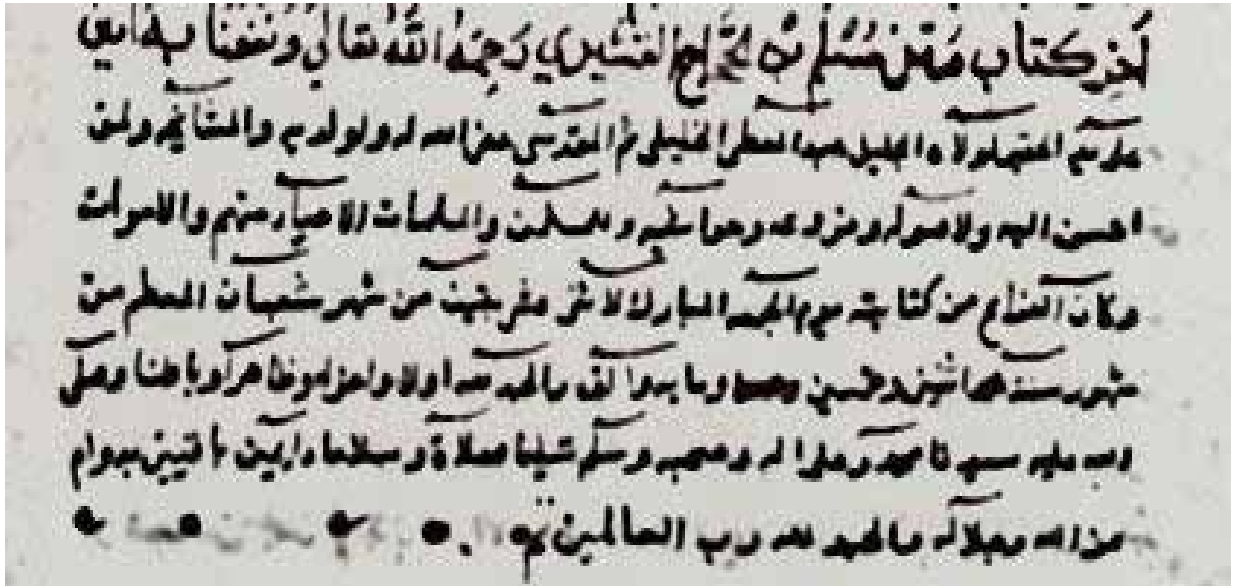 آخر كتاب متن مسلم بن الحجاج القشيري رحمه الله تعالى ونفعنا به آمين
على يد الفقير لمولاه الجليل عبد المعطي الخليلي ثم المقدسي عفى الله له ولوالديه والمشايخه ولمن
احسن اليه ولاصوله وفروعه وللمسلمين والمسلمات الاحياء منهم والاموات
وكان الفراغ من كتابته يوم الجمعة المبارك لاثني عشر من شهر شعبان المعظم من
شهور سنة اثنين وخمسين ومايه والف والحمد لله اولا واخرا وظاهرا وباطنا وصلى
الله على سيدنا محمد وعلى اله وصحبه وسلم تسليما صلاة وسلاما دايمين بدوام
عز الله وجلاله والحمد لله رب العالمين تم